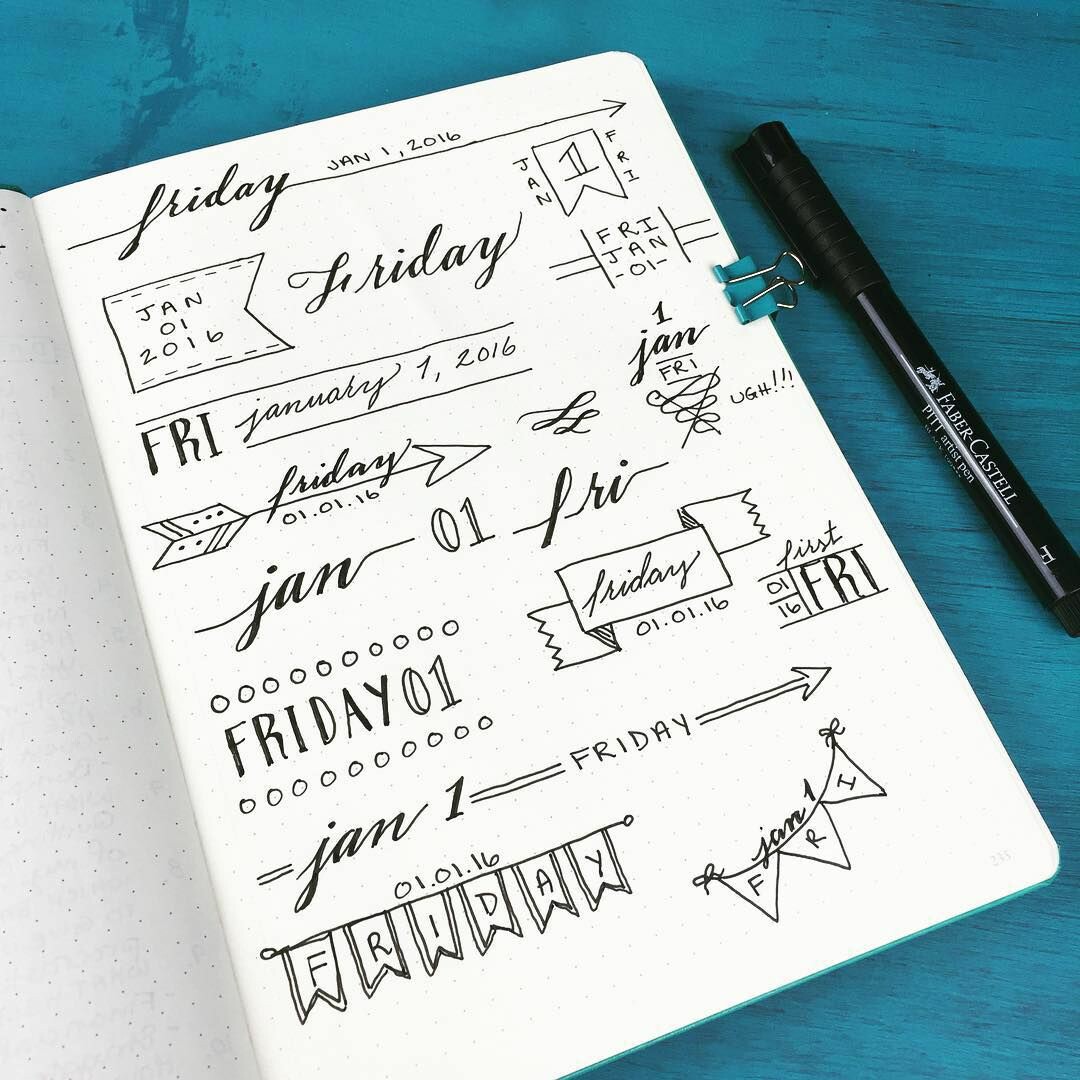 friday JAN 1, 2016
JAN 1 FRI
JAN
01
2016
Friday
FRI
JAN
-01-
FRI january 1, 2016
1
jan
FRI
UGH!!!
friday
01.01.16
jan 01 fri
friday
01.01.16
first
01
16 FRI
FRIDAY 01
jan 1 FRIDAY
01.01.16
FRIDAY
jan 1
FRI
FABER-CASTELL
PITT artist pen